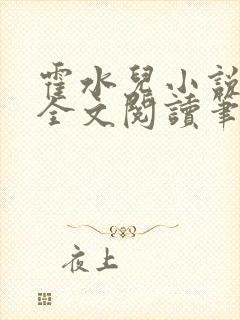 霍水兒小說
全文閱讀筆
夜上